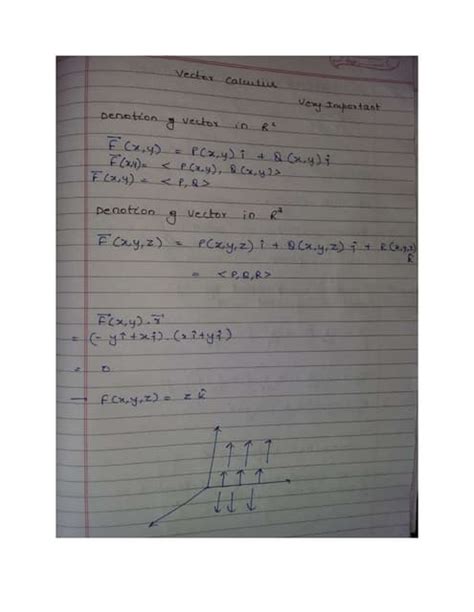 Vector Calculus
Very Important
Denotion of vector in R²
F̅(x,y) = P(x,y) î + Q(x,y) ĵ
F̅(x,y) = < P(x,y), Q(x,y) >
F̅(x,y) = < P,Q >
Denotion of vector in R³
F̅(x,y,z) = P(x,y,z) î + Q(x,y,z) ĵ + R(x,y,z) k̂
= < P,Q,R >
F̅(x,y) . r̅
= (- y î + x ĵ) . (x î + y ĵ)
= 0
→ F(x,y,z) = z k̂